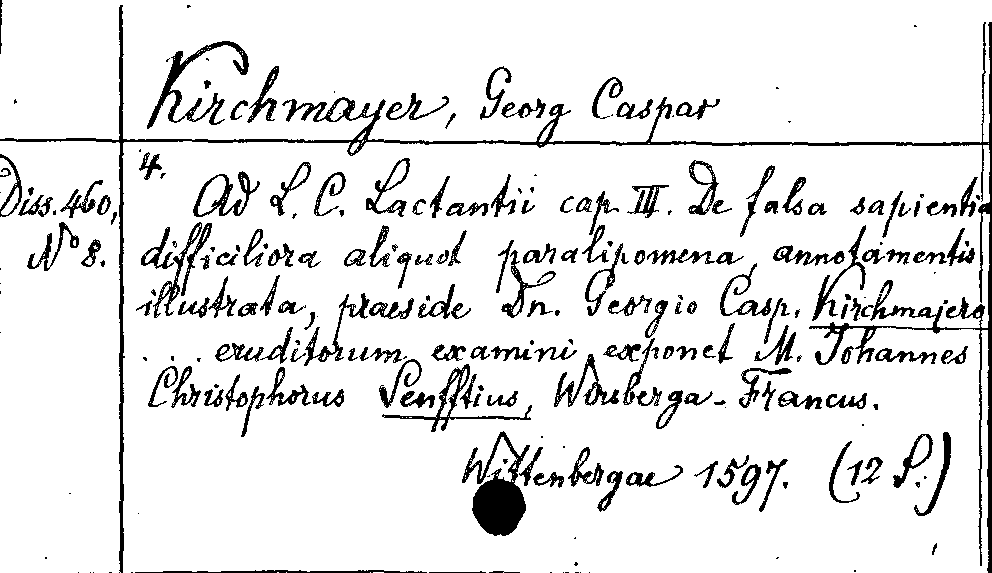 Kirchmayer, Georg Caspar
4.
Diss. 460, Ad L. C. Lactantii cap. III. De falsa sapientia
No 8. difficiliora aliquot paralipomena, annotamentis
illustrata, praeside Dn. Georgio Casp. Kirchmajero
. . . eruditorum examini exponet M. Johannes
Christophorus Senfftius, Wonberga-Francus.
Wittenbergae 1597. (12 S.)